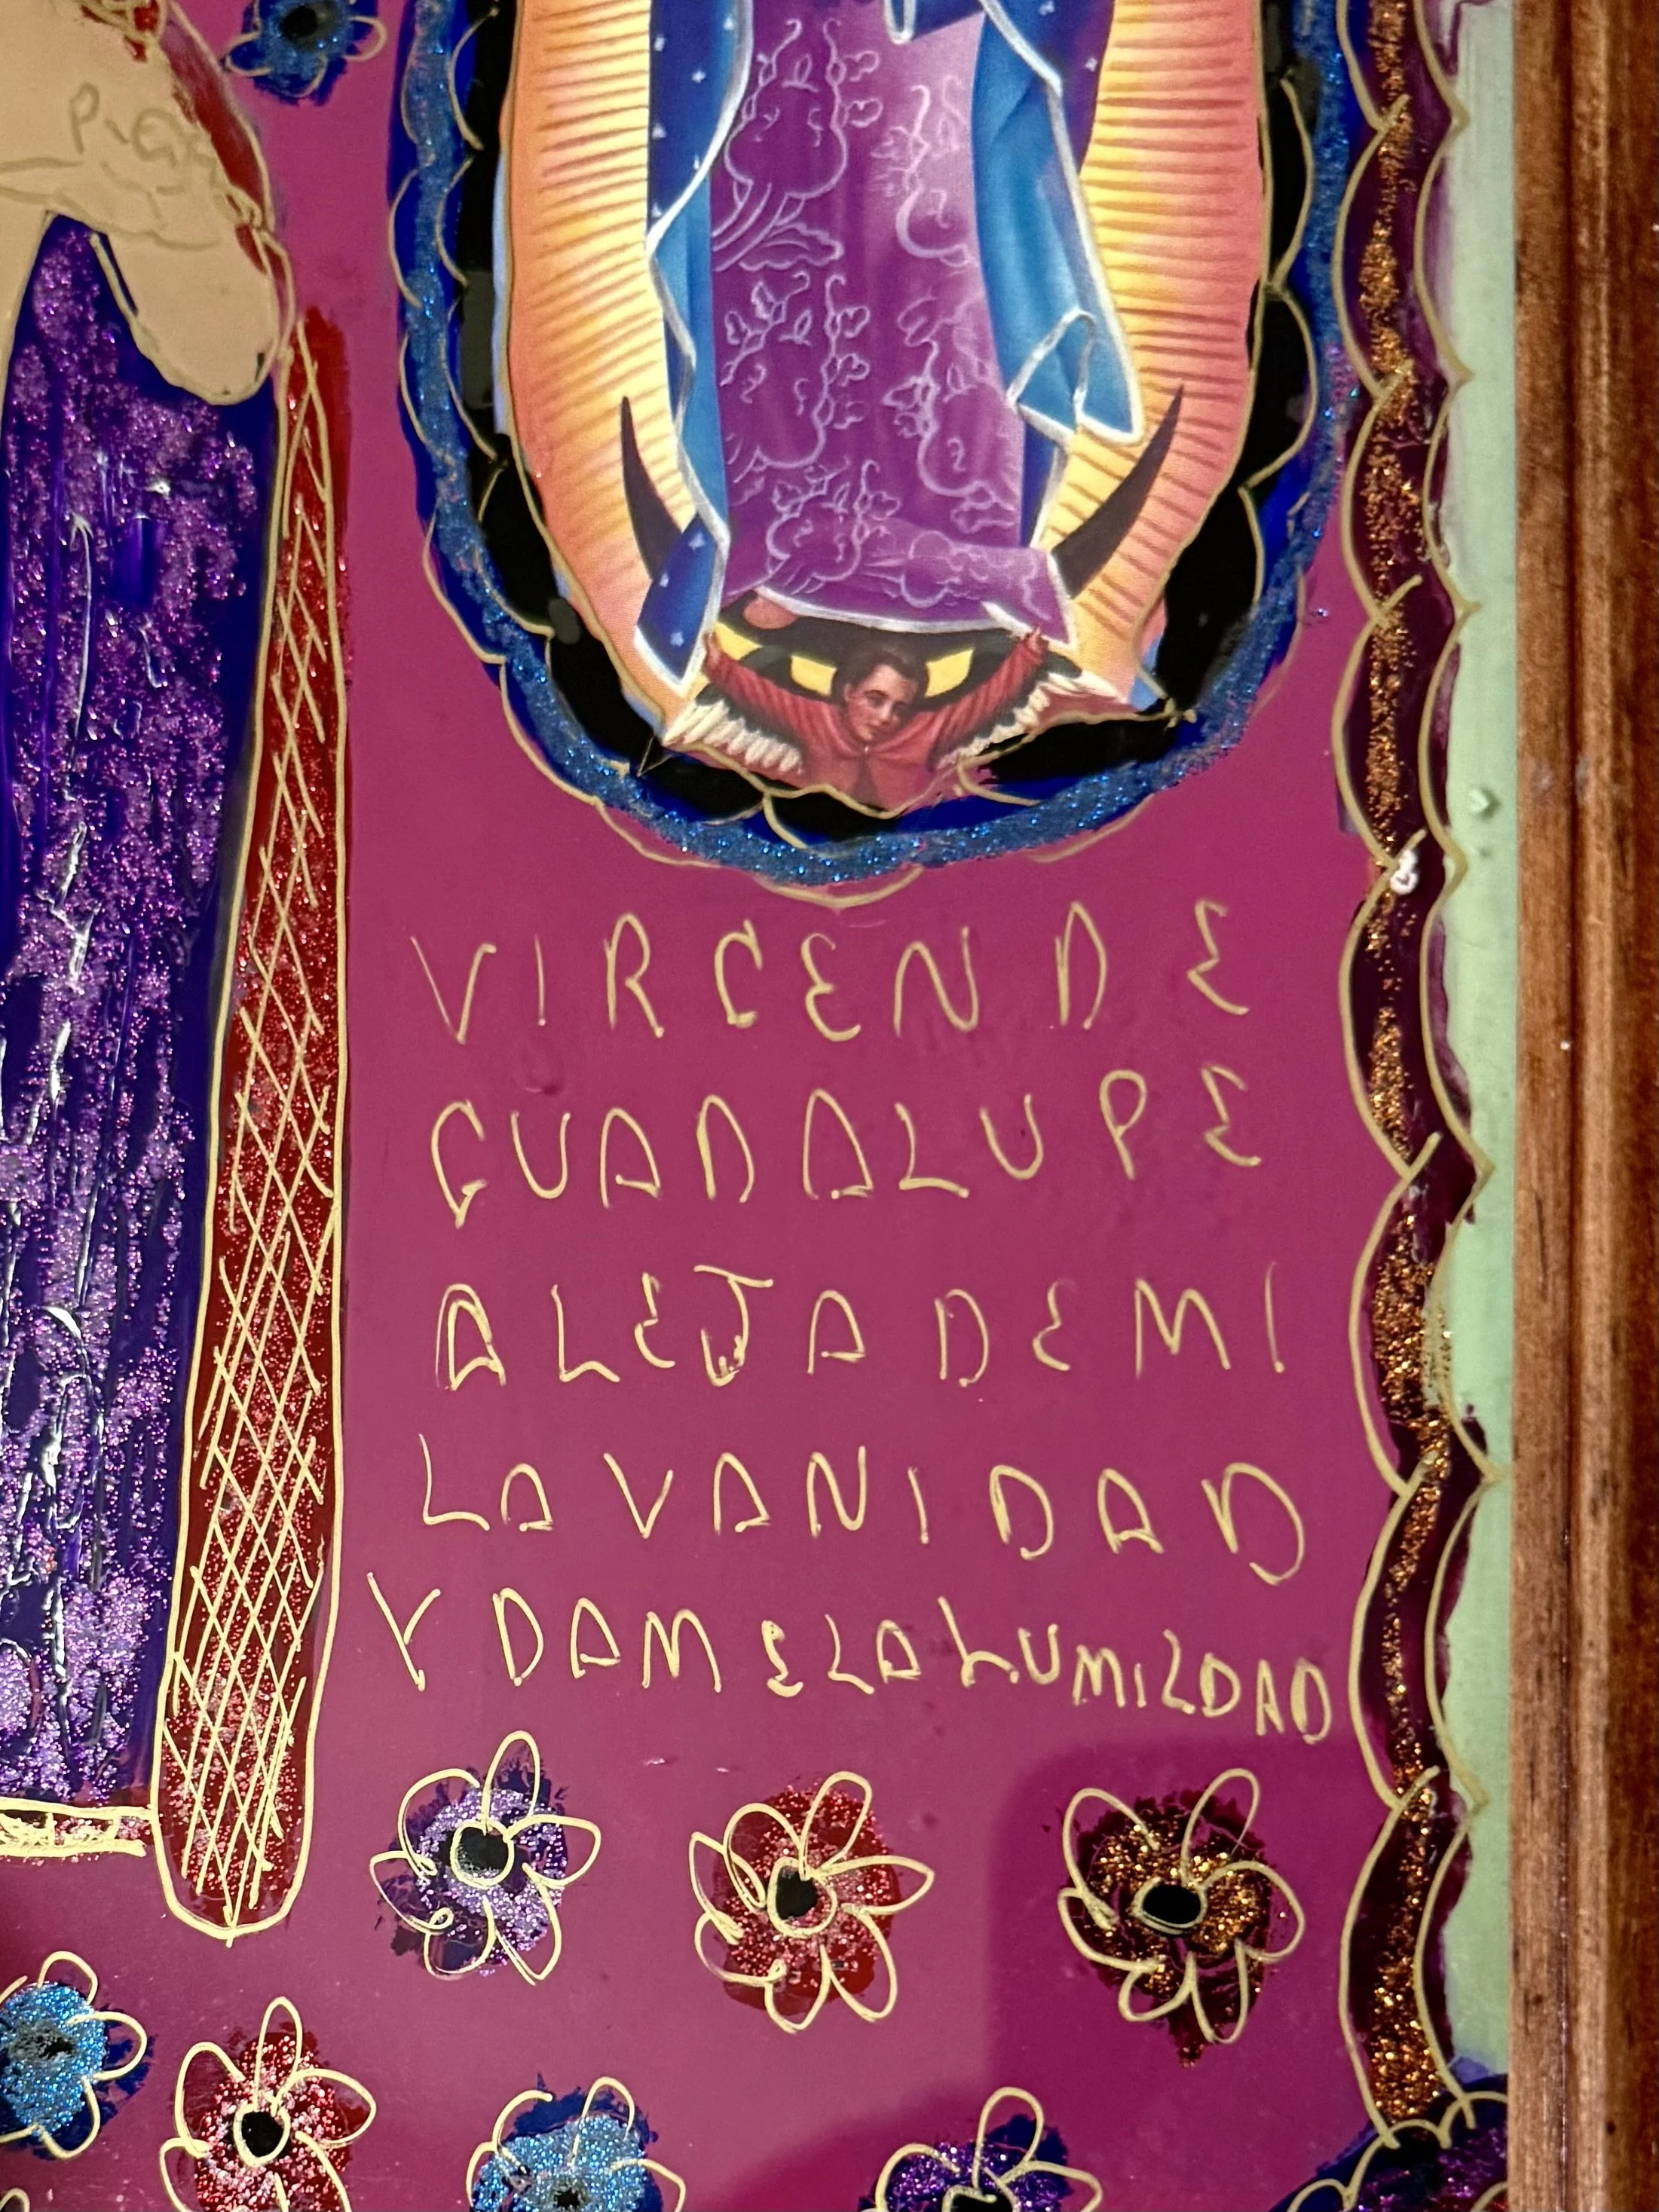 VIRGEN DE
GUADALUPE
ALEJA DE MI
LA VANIDAD
Y DAME LA HUMILDAD